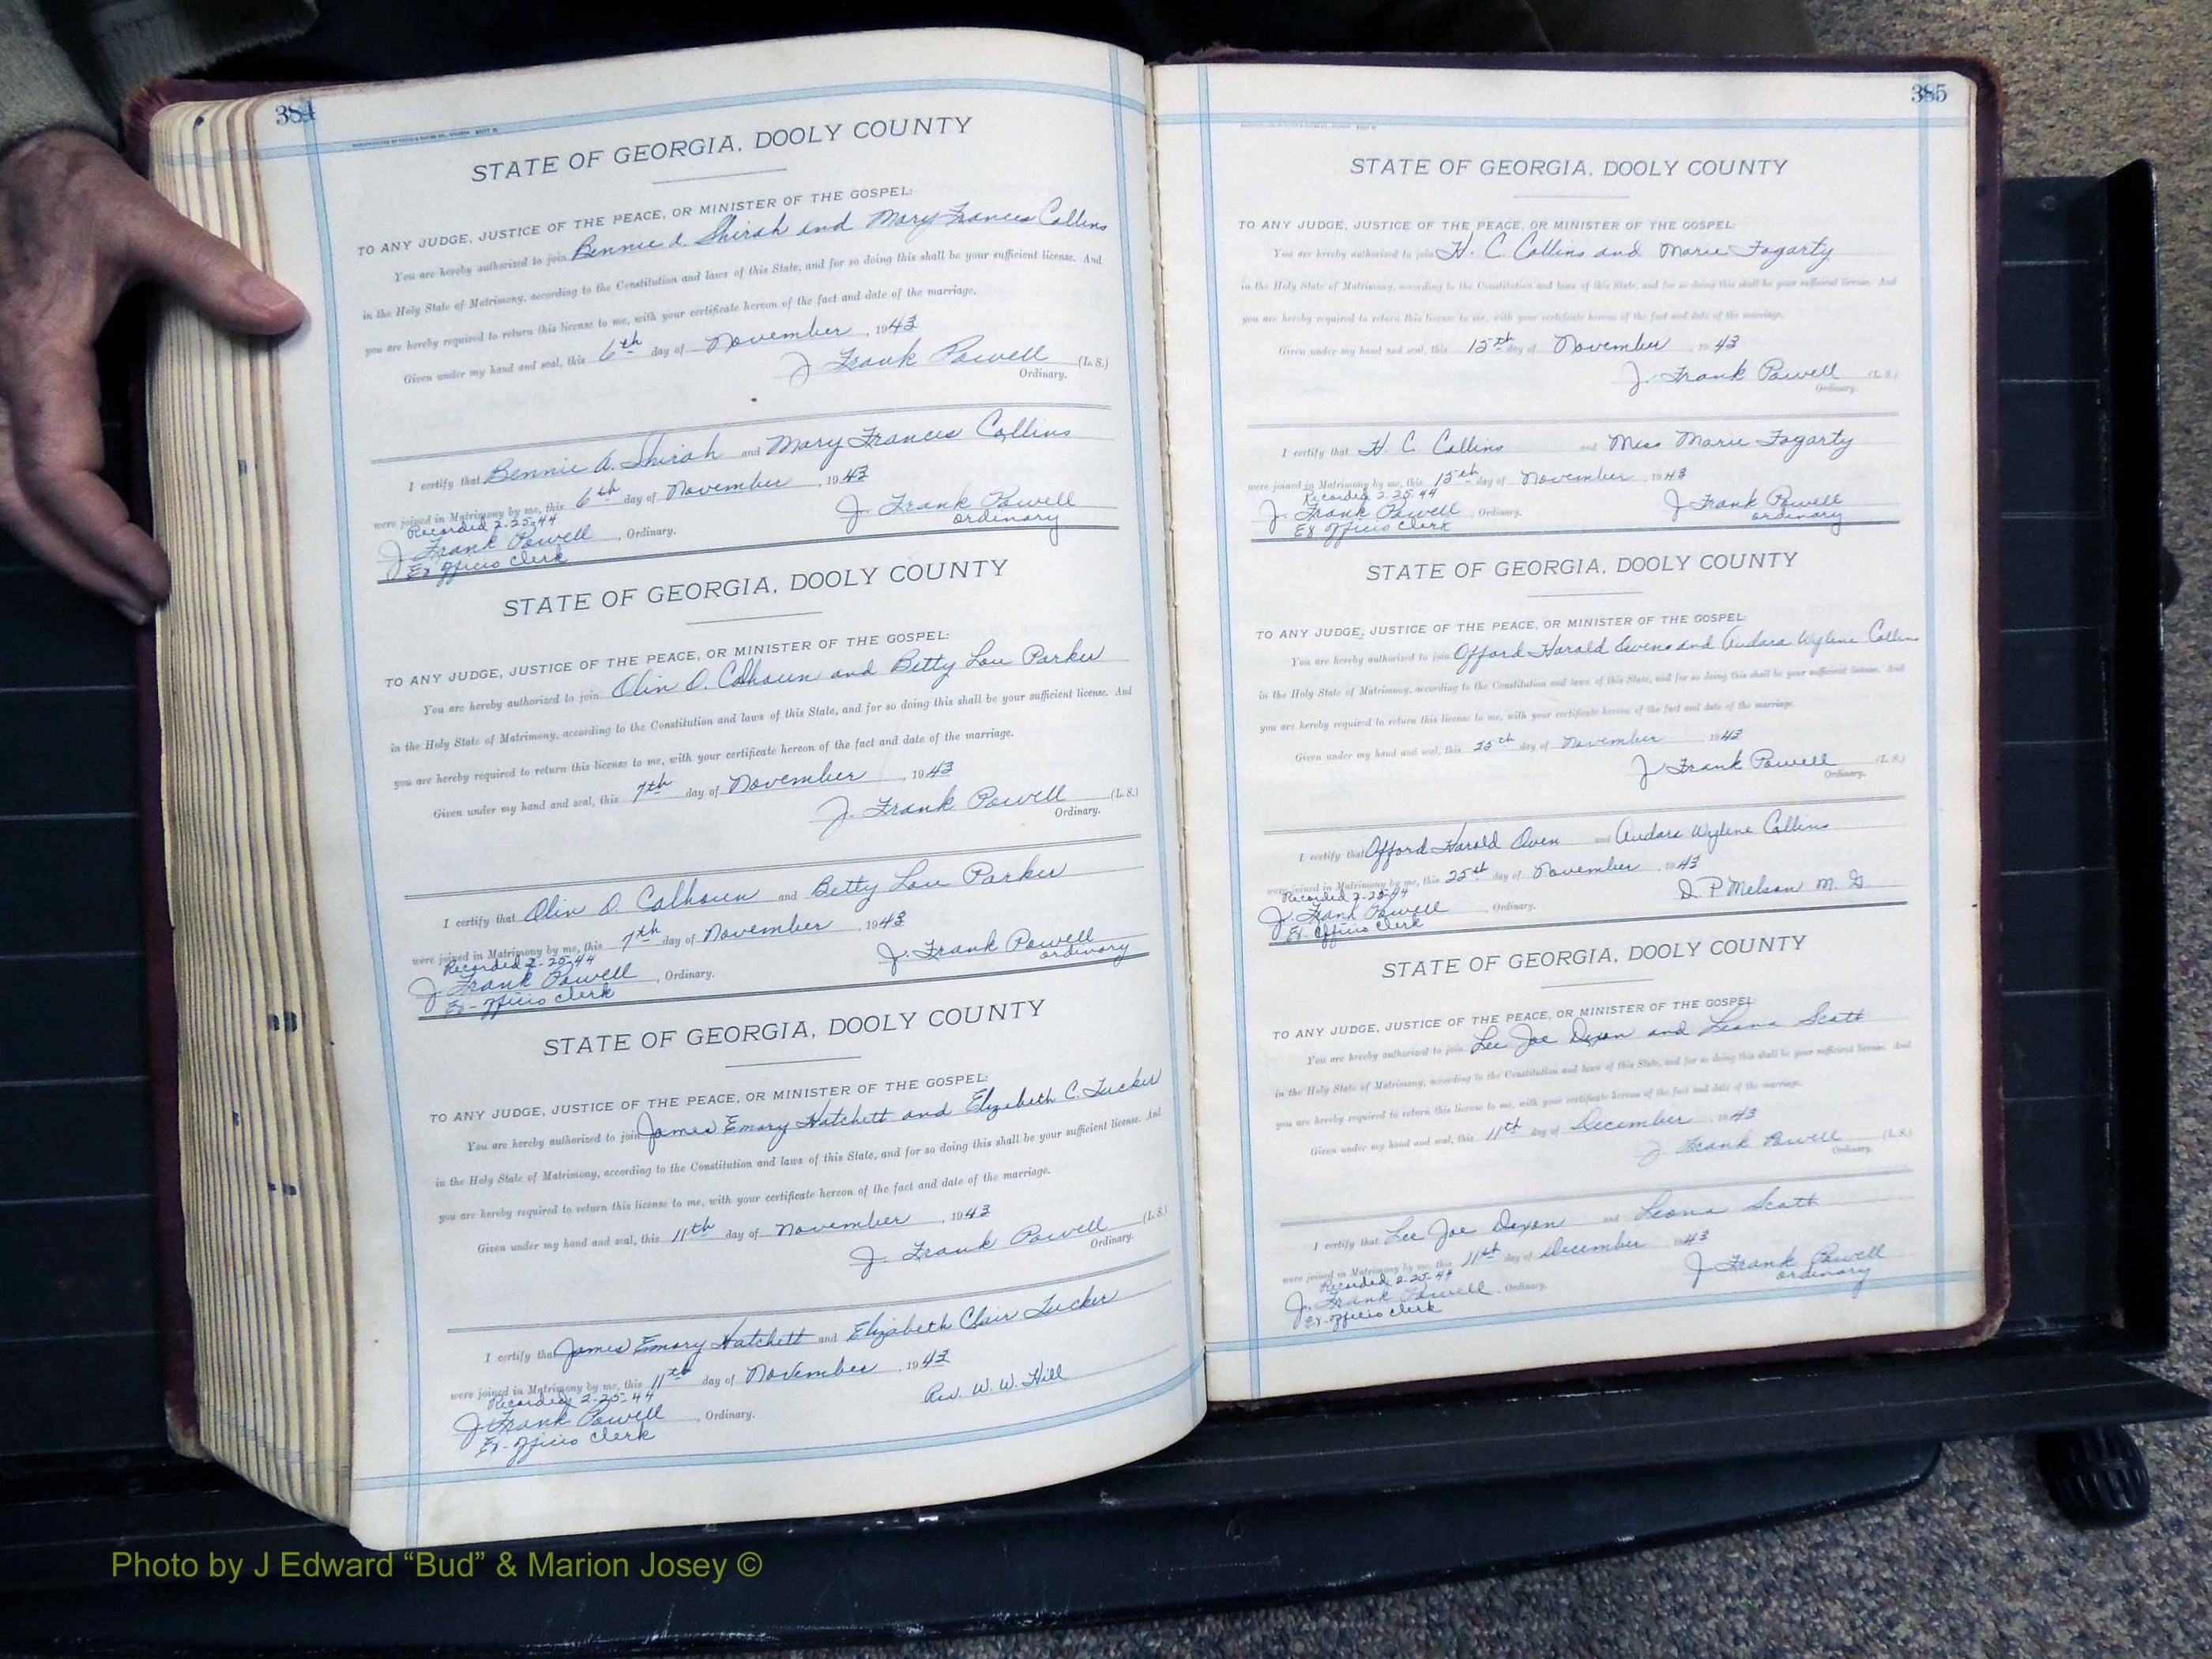 384
STATE OF GEORGIA, DOOLY COUNTY
TO ANY JUDGE, JUSTICE OF THE PEACE, OR MINISTER OF THE GOSPEL:
You are hereby authorized to join Bennie A. Shirah and Mary Frances Collins
in the Holy State of Matrimony, according to the Constitution and laws of this State, and for so doing this shall be your sufficient license. And
you are hereby required to return this license to me, with your certificate hereon of the fact and date of the marriage.
Given under my hand and seal, this 6th day of November, 1943
J. Frank Powell (L. S.)
Ordinary.
I certify that Bennie A. Shirah and Mary Frances Collins
were joined in Matrimony by me, this 6th day of November, 1943
Recorded 2-25-44
J. Frank Powell
ordinary
J Frank Powell, Ordinary.
Ex officio Clerk
STATE OF GEORGIA, DOOLY COUNTY
TO ANY JUDGE, JUSTICE OF THE PEACE, OR MINISTER OF THE GOSPEL:
You are hereby authorized to join Olin O. Calhoun and Betty Lou Parker
in the Holy State of Matrimony, according to the Constitution and laws of this State, and for so doing this shall be your sufficient license. And
you are hereby required to return this license to me, with your certificate hereon of the fact and date of the marriage.
Given under my hand and seal, this 7th day of November, 1943
J. Frank Powell (L. S.)
Ordinary.
I certify that Olin O. Calhoun and Betty Lou Parker
were joined in Matrimony by me, this 7th day of November, 1943
Recorded 2-25-44
J. Frank Powell
ordinary
J Frank Powell, Ordinary.
Ex-officio Clerk
STATE OF GEORGIA, DOOLY COUNTY
TO ANY JUDGE, JUSTICE OF THE PEACE, OR MINISTER OF THE GOSPEL:
You are hereby authorized to join James Emory Hatchett and Elizabeth C. Tucker
in the Holy State of Matrimony, according to the Constitution and laws of this State, and for so doing this shall be your sufficient license. And
you are hereby required to return this license to me, with your certificate hereon of the fact and date of the marriage.
Given under my hand and seal, this 11th day of November, 1943
J. Frank Powell (L. S.)
Ordinary.
I certify that James Emory Hatchett and Elizabeth Clair Tucker
were joined in Matrimony by me, this 11th day of November, 1943
Recorded 2-25-44
Rev. W. W. Hill
J Frank Powell, Ordinary.
Ex-officio Clerk
385
STATE OF GEORGIA, DOOLY COUNTY
TO ANY JUDGE, JUSTICE OF THE PEACE, OR MINISTER OF THE GOSPEL:
You are hereby authorized to join H. C. Collins and Marie Fogarty
in the Holy State of Matrimony, according to the Constitution and laws of this State, and for so doing this shall be your sufficient license. And
you are hereby required to return this license to me, with your certificate hereon of the fact and date of the marriage.
Given under my hand and seal, this 15th day of November 1943
J. Frank Powell (L. S.)
Ordinary.
I certify that H. C. Collins and Miss Marie Fogarty
were joined in Matrimony by me, this 15th day of November, 1943
Recorded 2-25-44
J Frank Powell
ordinary
J. Frank Powell, Ordinary.
Ex officio Clerk
STATE OF GEORGIA, DOOLY COUNTY
TO ANY JUDGE, JUSTICE OF THE PEACE, OR MINISTER OF THE GOSPEL:
You are hereby authorized to join Offord Harold Owens and Audara Wylene Collins
in the Holy State of Matrimony, according to the Constitution and laws of this State, and for so doing this shall be your sufficient license. And
you are hereby required to return this license to me, with your certificate hereon of the fact and date of the marriage.
Given under my hand and seal, this 25th day of November 1943
J Frank Powell (L. S.)
Ordinary.
I certify that Offord Harold Owen and Audara Wylene Collins
were joined in Matrimony by me, this 25st day of November, 1943
Recorded 2-25-44
D. P. Melson M. G
J. Frank Powell, Ordinary.
Ex-officio Clerk
STATE OF GEORGIA, DOOLY COUNTY
TO ANY JUDGE, JUSTICE OF THE PEACE, OR MINISTER OF THE GOSPEL:
You are hereby authorized to join Lee Joe Dixon and Leona Scott
in the Holy State of Matrimony, according to the Constitution and laws of this State, and for so doing this shall be your sufficient license. And
you are hereby required to return this license to me, with your certificate hereon of the fact and date of the marriage.
Given under my hand and seal, this 11th day of December, 1943
J Frank Powell (L. S.)
Ordinary.
I certify that Lee Joe Dixon and Leona Scott
were joined in Matrimony by me, this 11st day of December 1943
Recorded 2-25-44
J Frank Powell
ordinary
J. Frank Powell, Ordinary.
Ex-officio Clerk
Photo by J Edward “Bud” & Marion Josey ©